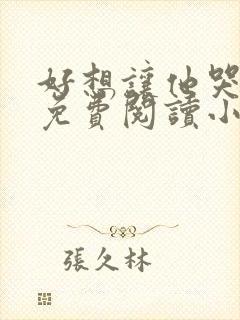 好想讓他哭
免費閱讀小
張久林